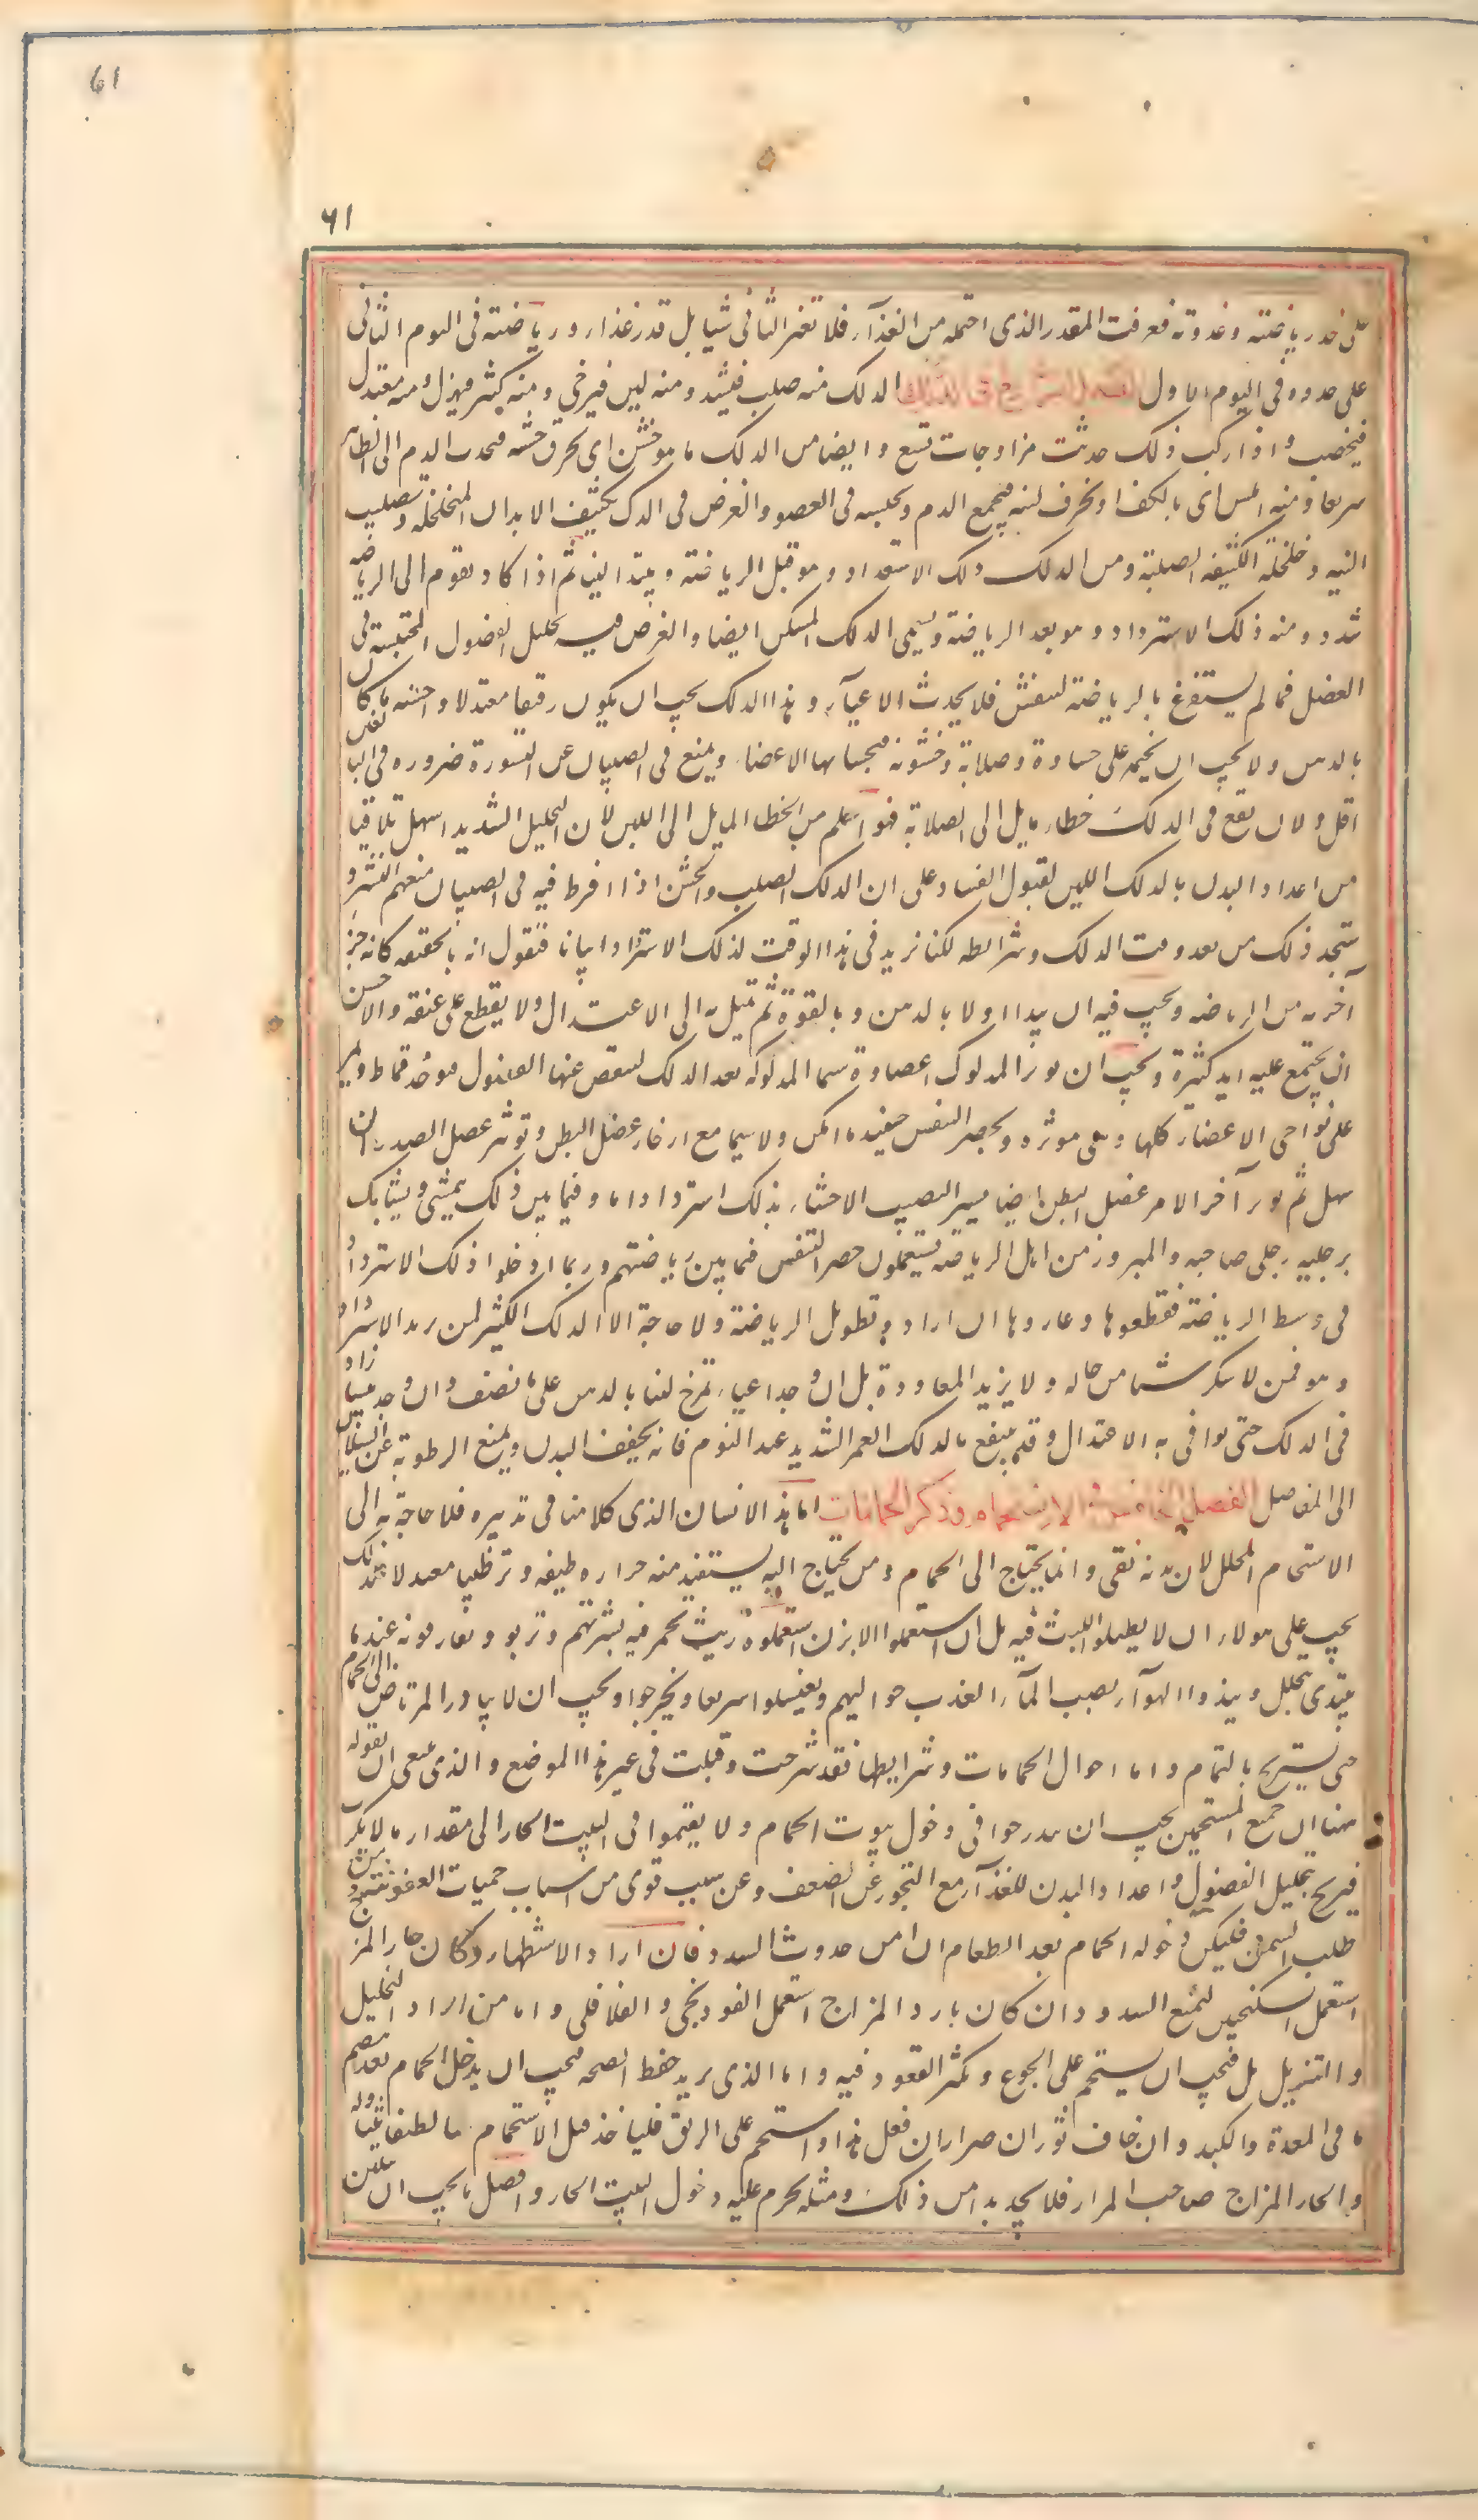 61
٦١
على قدر رياضته وغدوته فعرفت المقدر الذى احتمله من الغذآء فلا تغير الثانى شيا بل قدر غذاءه ورياضته فى اليوم الثانى
على حدوده فى اليوم الاول الفصل الرابع فى الدلك الدلك منه صلب فيشد ومنه لين فيرخى ومنه كثير فيهزل ومنه معتدل
فيخصب واذا ركب ذلك حدثت مزاوجات تسع وايضا من الدلك ما هو خشن اى بخرق خشنه فيجذب الدم الى الظاهر
سريعا ومنه املس اى بالكف او بخرق لينه فيجمع الدم ويحبسه فى العضو والغرض فى الدلك تكثيف الابدان المتخلخله وتصليب
اللينه وخلخلة الكثيفه الصلبة ومن الدلك دلك الاستعداد وهو قبل الرياضة ويبتدا لينا ثم اذا كاد يقوم الى الرياضه
شدد ومنه دلك الاسترداد وهو بعد الرياضة ويسمى الدلك المسكن ايضا والغرض فيه تحليل الفضول المحتبسة فى
العضل فما لم يستفرغ بالرياضة لينفش فلا يحدث الاعيآء وهذا الدلك يجب ان يكون رقيقا معتدلا واحسنه ما كان
بالدهن ولا يجب ان يختمه على جساوة وصلابة وخشونه فيجسا بها الاعضاء ويمنع فى الصبيان عن النشو وضرره فى البالغين
اقل ولان يقع فى الدلك خطاء مايل الى الصلابة فهو اسلم من الخطا المايل الى اللين لان التحليل الشديد اسهل تلافيا
من اعداد البدن بالدلك اللين لقبول الفساد على ان الدلك الصلب والخشن اذا افرط فيه فى الصبيان منعهم النشو و
ستجد ذلك من بعد وقت الدلك وشرائطه لكنا نريد فى هذا الوقت لدلك الاسترداد بيانا فنقول انه بالحقيقه كانه جزء
آخر من الرياضه ويجب فيه ان يبدا اولا بالدهن وبالقوة ثم تميل به الى الاعتدال ولا يقطع على عنفه والاحسن
ان يجتمع عليه ايد كثيرة ويجب ان يوتر المدلوك اعضاوه المدلوكه بعد الدلك لينفض عنها الفضول فيوخذ قماط ويمر
على نواحى الاعضاء كلها وهى موتره ويحصر النفس حينئذ ما امكن ولا سيما مع ارخاء عضل البطن وتوتر عضل الصدر ان
سهل ثم يوتر آخر الامر عضل البطن ايضا يسيرا لتصيب الاحشاء بذلك استردادا ما وفيما بين ذلك يمشى ويشابك
برجليه رجلى صاحبه والمبرزون من اهل الرياضة يستعملون حصر النفس فيما بين رياضتهم وربما ادخلوا دلك الاسترداد
فى وسط الرياضة فقطعوها وعاودوها ان ارادوا تطويل الرياضة ولا حاجة الى الدلك الكثير لمن يريد الاسترداد
وهو ممن لا ينكر شيا من حاله ولا يريد المعاودة بل ان وجد اعياء تمرخ لينا بالدهن على ما نصف وان وجد يبسا زاد
فى الدلك حتى يوافى به الاعتدال وقد ينتفع بالدلك الغمر الشديد عند النوم فانه يجفف البدن ويمنع الرطوبة عن السيلان
الى المفاصل الفصل الخامس فى الاستحمام وذكر الحمامات اما هذا الانسان الذى كلامنا فى تدبيره فلا حاجة به الى
الاستحمام المحلل لان بدنه نقى وانما يحتاج الى الحمام من يحتاج اليه ليستفيد منه حراره لطيفه وترطيبا معتدلا فلذلك
يجب على هولاء ان لا يطيلوا اللبث فيه بل ان استعملوا الابزن استعملوه ريث تحمر فيه بشرتهم وتربو ويفارقونه عند ما
يبتدى يتحلل وينذوا الهوآء بصب المآء العذب حواليهم ويغتسلوا سريعا ويخرجوا ويجب ان لا يبادر المرتاض الى الحمام
حتى يستريح بالتمام واما احوال الحمامات وشرايطها فقد شرحت وقيلت فى غير هذا الموضع والذى ينبغى ان نقوله
ههنا ان جميع المستحمين يجب ان يتدرجوا فى دخول بيوت الحمام ولا يقيموا فى البيت الحار الى مقدار ما لا يكرب
فيريح بتحليل الفضول واعداد البدن للغذآء مع التحرز عن الضعف وعن سبب قوى من اسباب حميات العفونة ومن
طلب السمن فليكن دخوله الحمام بعد الطعام ان امن حدوث السدد فان اراد الاستظهار وكان حار المزاج
استعمل السكنجبين ليمنع السدد وان كان بارد المزاج استعمل الفودنجى والفلافلى واما من اراد التحليل
والتهزيل فيجب ان يستحم على الجوع ويكثر القعود فيه واما الذى يريد حفظ الصحه فيجب ان يدخل الحمام بعد هضم
ما فى المعدة والكبد وان خاف ثوران مرار ان فعل هذا واستحم على الريق فلياخذ قبل الاستحمام شيا لطيفا يتناوله
والحار المزاج صاحب المرار فلا يجد بدا من ذلك ومثله يحرم عليه دخول البيت الحار وافضل ما يجب ان